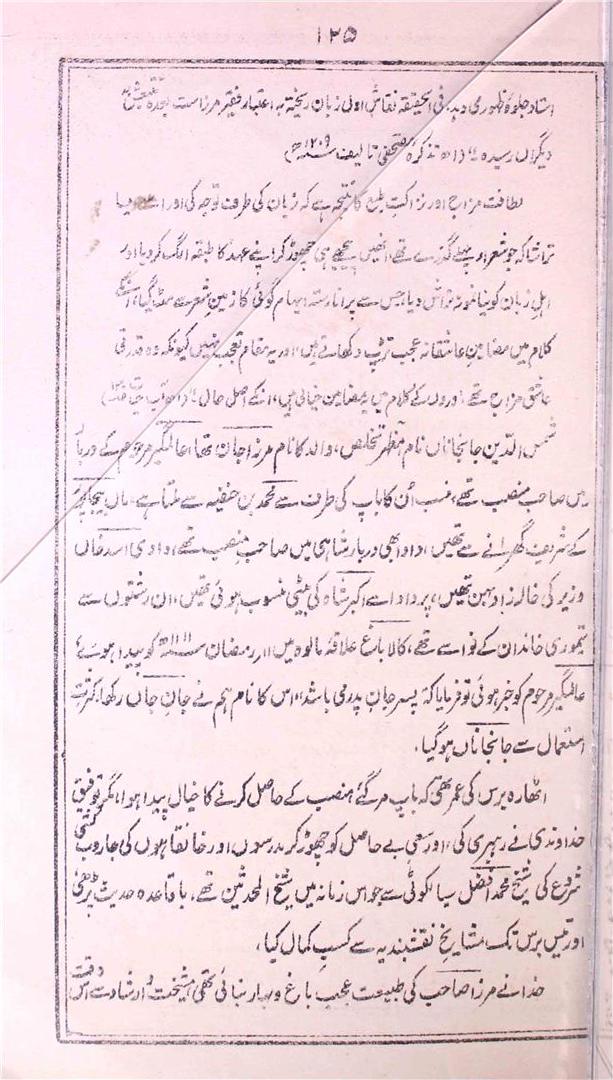 ۱۲۵
استاد جلوۂ ظہوری دید، فی الحقیقہ نقاش اولی زبان ریختہ بہ اعتبار فقیر مرزاست بعدہٗ
دیگراں رسیدہ" (از تذکرہ مصحفی تالیف سنہ ۱۲۰۹ھ)
لطافت مزاج اور نزاکت طبع کا نتیجہ ہے کہ زبان کی طرف توجہ کی اور اسے
تراشا کہ جو شعرا پہلے گزرے تھے، انھیں پیچھے ہی چھوڑ کر اپنے عہد کا طبقہ الگ کر دیا اور
اہل زبان کو نیا نمونہ تراش دیا، جس سے پرانا رستہ ایہام گوئی کا زمین شعر سے مٹ گیا، انکے
کلام میں مضامین عاشقانہ عجب تڑپ دکھاتے ہیں، اور یہ مقام تعجب نہیں کیونکہ وہ قدرتی
عاشق مزاج تھے، اوروں کے کلام میں یہ مضامین خیالی ہیں، انکے اصل حال" (از آب حیات
شمس الدین جانجاناں نام مظہر تخلص، والد کا نام مرزا جان تھا، عالمگیر مرحوم کے دربار
میں صاحب منصب تھے، نسب اُن کا باپ کی طرف سے محمد بن حنفیہ سے ملتا ہے، ماں بیجاپور
کے شریف گھرانے سے تھیں، دادا بھی دربار شاہی میں صاحب منصب تھے، دادی اسد خاں
وزیر کی خالہ زاد بہن تھیں، پردادا سے اکبر شاہ کی بیٹی منسوب ہوئی تھیں، ان رشتوں سے
تیموری خاندان کے نواسے تھے، کالا باغ علاقۂ مالوہ میں ۱۱ رمضان سنہ ۱۱۱۱ھ کو پیدا ہوئے
عالمگیر مرحوم کو خبر ہوئی تو فرمایا کہ پسر جان پدر می باشد، اس کا نام ہم نے جان جاں رکھا، کثرت
استعمال سے جانجاناں ہو گیا۔
اٹھارہ برس کی عمر تھی کہ باپ مر گئے، منصب کے حاصل کرنے کا خیال پیدا ہوا، مگر توفیق
خداوندی نے رہبری کی، اور سعی بے حاصل کو چھوڑ کر مدرسوں اور خانقاہوں کی جاروب کشی
شروع کی، شیخ محمد افضل سیالکوٹی سے جو اس زمانہ میں شیخ المحدثین تھے، باقاعدہ حدیث پڑھی
اور تیس برس تک مشایخ نقشبندیہ سے کسب کمال کیا،
خدا نے مرزا صاحب کی طبیعت عجب باغ و بہار بنائی تھی، مشیخت و ارشاد سے اس وقت